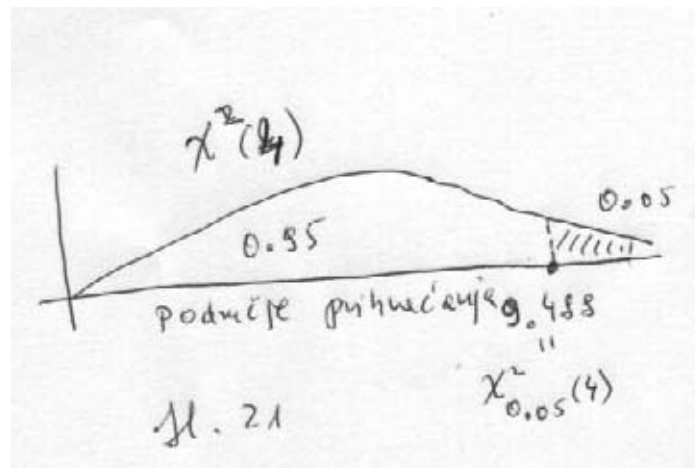 χ²(4)
0.05
0.95
područje prihvaćanja 9.488
"
χ²0.05(4)
Sl. 21